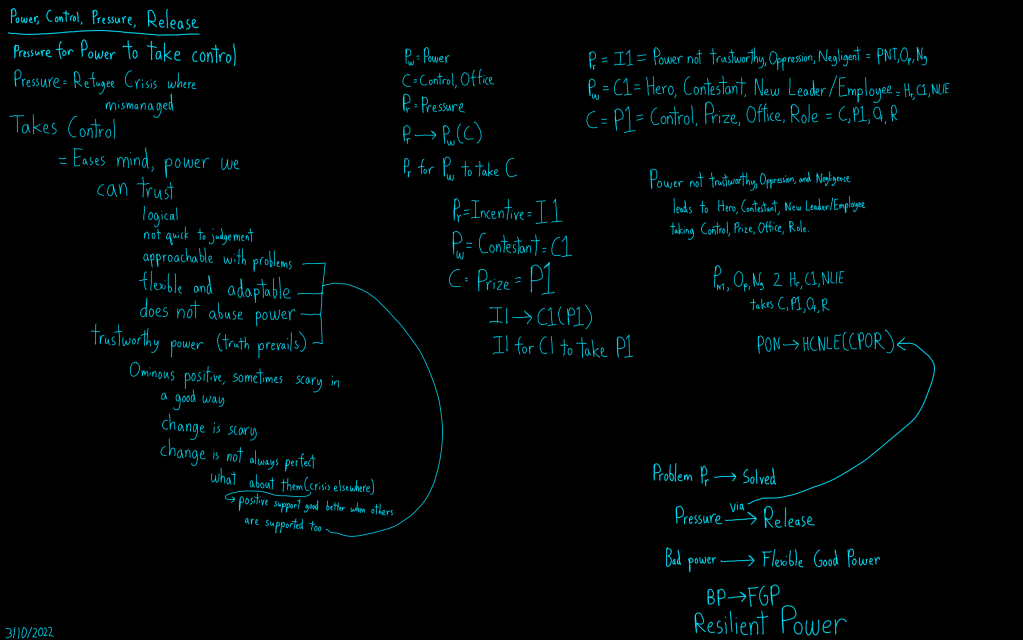 Power, Control, Pressure, Release
Pressure for Power to take control
Pressure = Refugee Crisis where
mismanaged
Takes Control
= Eases mind, power we
can trust
logical
not quick to judgement
approachable with problems
flexible and adaptable
does not abuse power
trustworthy power (truth prevails)
Ominous positive, sometimes scary in
a good way
change is scary
change is not always perfect
what about them (crisis elsewhere)
↳ positive support good better when others
are supported too
3/10/2022
Pw = Power
C = Control, Office
Pr = Pressure
Pr → Pw(C)
Pr for Pw to take C
Pr = Incentive = I1
Pw = Contestant = C1
C = Prize = P1
I1 → C1(P1)
I1 for C1 to take P1
Pr = I1 = Power not trustworthy, Oppression, Negligent = PNT, Op, Ng
Pw = C1 = Hero, Contestant, New Leader/Employee = Hr, C1, NLIE
C = P1 = Control, Prize, Office, Role = C, P1, O, R
Power not trustworthy, Oppression, and Negligence
leads to Hero, Contestant, New Leader/Employee
taking Control, Prize, Office, Role.
PNT, Op, Ng 2 Hr, C1, NLIE
takes C, P1, O, R
PON → HCNLE(CPOR)
Problem Pr → Solved
Pressure via → Release
Bad power → Flexible Good Power
BP → FGP
Resilient Power